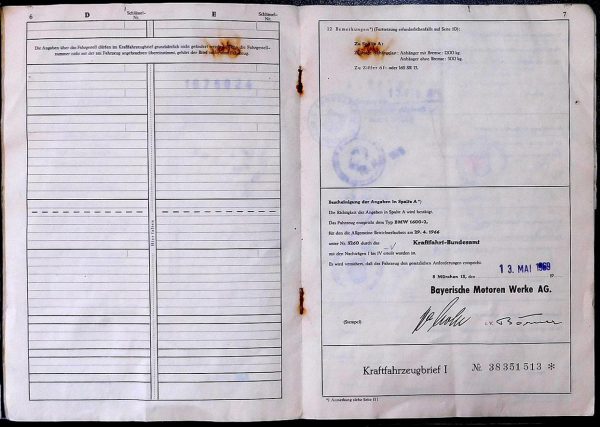 6
D
Schlüssel-
Nr.
E
Schlüssel-
Nr.
Die Angaben über das Fahrgestell dürfen im Kraftfahrzeugbrief grundsätzlich nicht geändert
nummer nicht mit der am Fahrzeug angegebenen übereinstimmt, gehört der Brief
7
12 Bemerkungen*) (Fortsetzung erforderlichenfalls auf Seite 10):
Zu Spalte A:
Anhänger mit Bremse: 1200 kg
Anhänger ohne Bremse: 500 kg
Zu Ziffer 61: oder 165 SR 13.
Bescheinigung der Angaben in Spalte A*)
Die Richtigkeit der Angaben in Spalte A wird bestätigt.
Das Fahrzeug entspricht dem Typ BMW 1600-2,
für den die Allgemeine Betriebserlaubnis am 29. 4. 1966
unter Nr. 5260 durch das Kraftfahrt-Bundesamt
mit den Nachträgen I bis IV erteilt worden ist.
Es wird versichert, daß das Fahrzeug den gesetzlichen Anforderungen entspricht.
8 München 13, den 13. MAI 1969 19
Bayerische Motoren Werke AG.
(Stempel)
i.V.
Kraftfahrzeugbrief I
№ 38351513 *
*) Anmerkung siehe Seite 12!